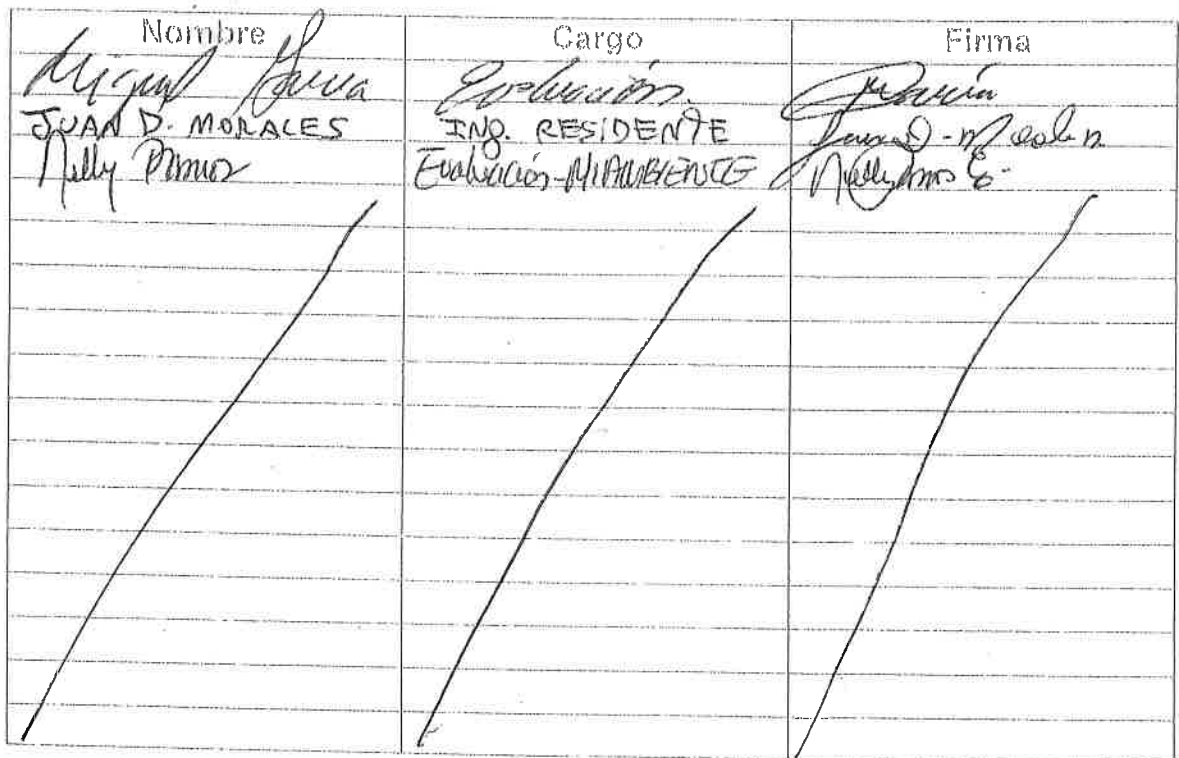 Nombre Cargo Firma
Miguel Evaluación
JUAN D. MORALES ING. RESIDENTE
Nelly Ramos Evaluación-MIAMBIENTE Nelly Ramos E.